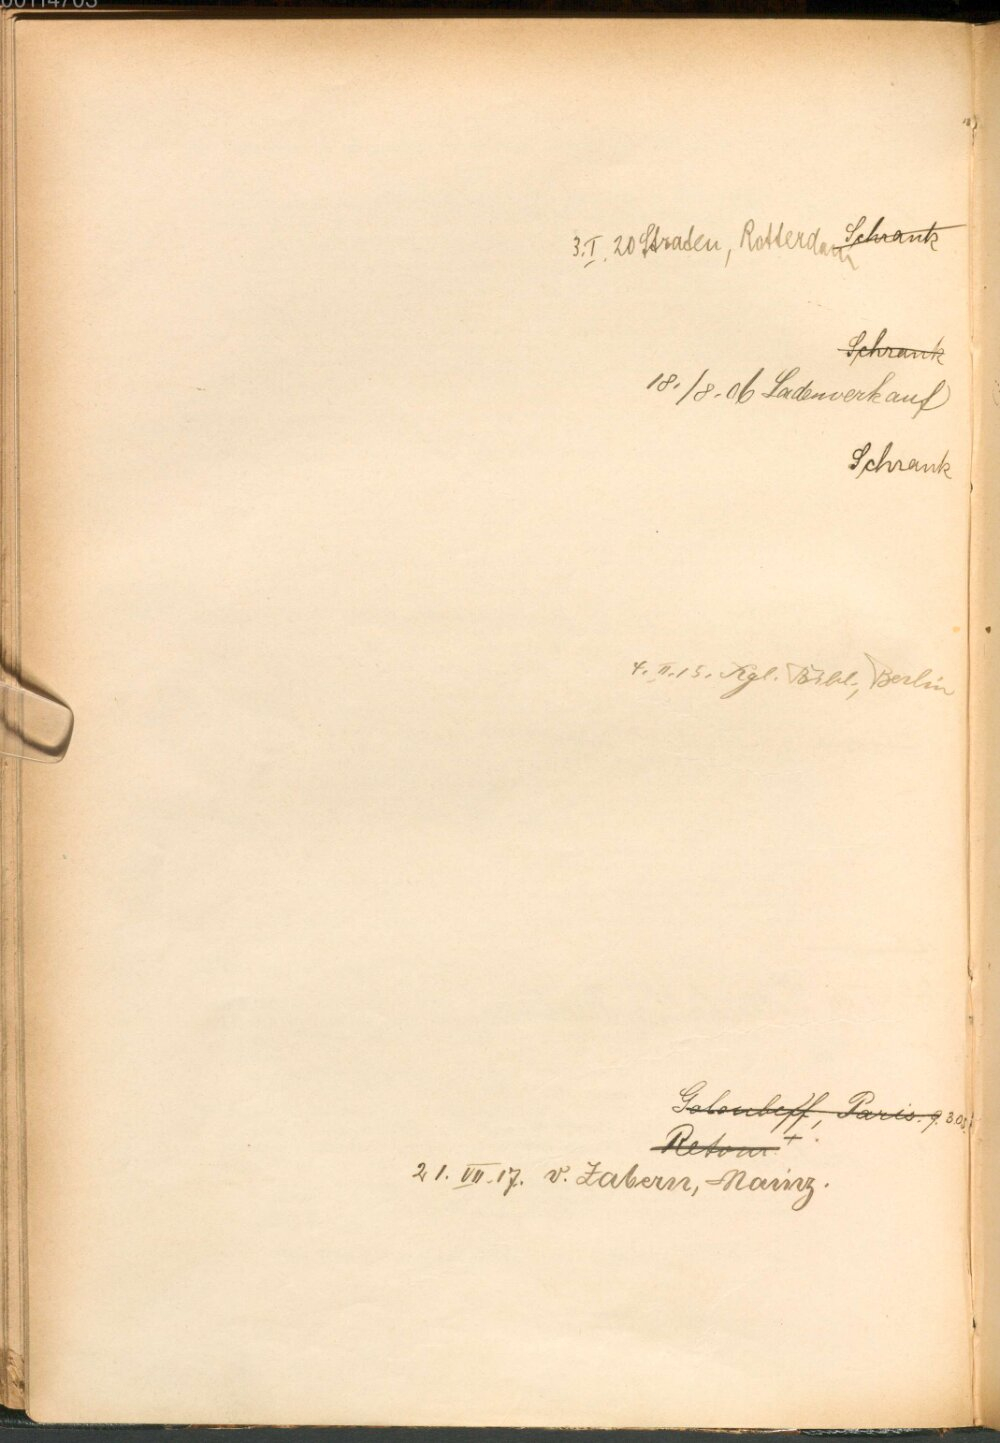 00114703
3.I.20 Straten, Rotterdam Schrank
Schrank
18./8.06 Ladenverkauf
Schrank
4.II.15. Kgl. Bibl., Berlin
Goloubeff, Paris. 9.3.03.
Retour +.
21.VII.17. v. Zabern, Mainz.